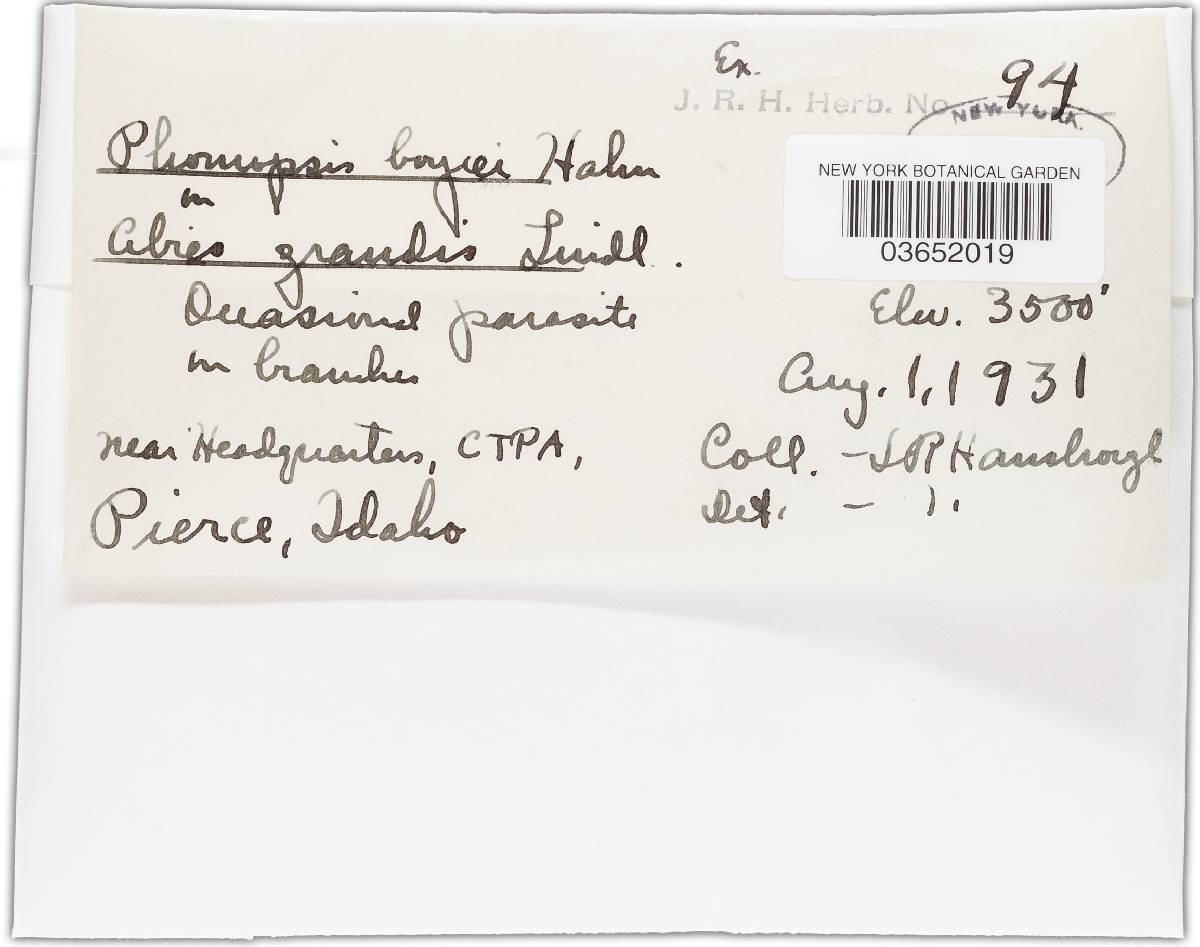 Ex.
J. R. H. Herb. No. 94
NEW YORK.
NEW YORK BOTANICAL GARDEN
03652019
Phomopsis boycei Hahn
on
Abies grandis Lindl.
Occasional parasite
on branches
Elev. 3500'
Aug. 1, 1931
near Headquarters, CTPA,
Pierce, Idaho
Coll. - JR Hansbrough
Det. - ".